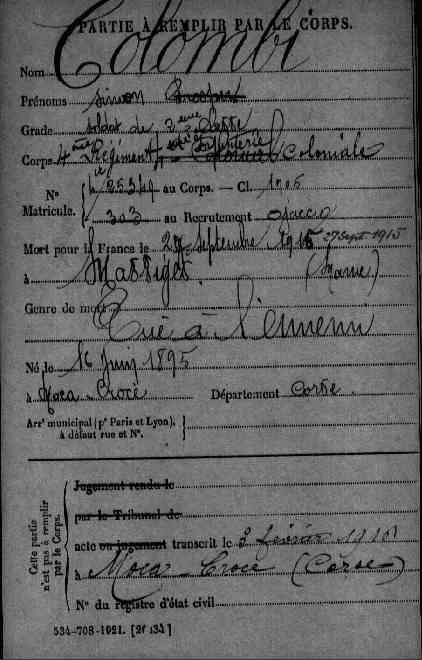 PARTIE À REMPLIR PAR LE CORPS.
Colombi
Nom
Prénoms Simon Prosper
Grade soldat de 2eme classe
Corps 4 Régiment Infanterie Coloniale
N° Matricule. au Corps. — Cl. 1915
303 au Recrutement Ajaccio
Mort pour la France le 27 Septembre 1915 27 Sept 1915
à Massiges (Marne)
Genre de mort Tué à l'ennemi
Né le 16 Juin 1895
à Moca-Croce Département Corse
Arrt municipal (pr Paris et Lyon), à défaut rue et N°.
Cette partie n'est pas à remplir par le Corps.
Jugement rendu le
par le Tribunal de
acte ou jugement transcrit le 3 février
à Moca-Croce (Corse)
N° du registre d'état civil
534-708-1921. [26434]